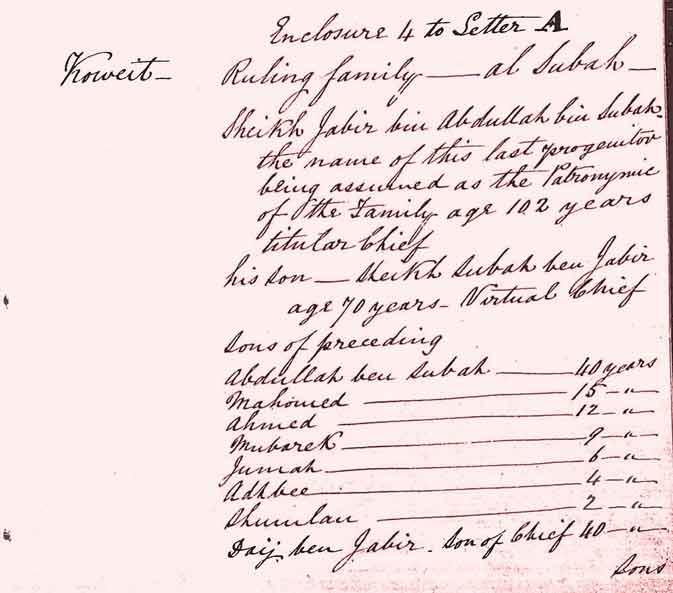 Enclosure 4 to Letter A
Koweit — Ruling family — al Subah —
Sheikh Jabir bin Abdullah bin Subah.
the name of this last progenitor
being assumed as the Patronymic
of the Family age 102 years
titular Chief
his son — Sheikh Subah ben Jabir
age 70 years – Virtual Chief
Sons of preceding
Abdullah ben Subah — 40 years
Mahomed — 15 – "
Ahmed — 12 – "
Mubarek — 9 – "
Jumah — 6 – "
Adhbee — 4 – "
Shumlau — 2 – "
Daij ben Jabir. Son of Chief 40 – "
Sons